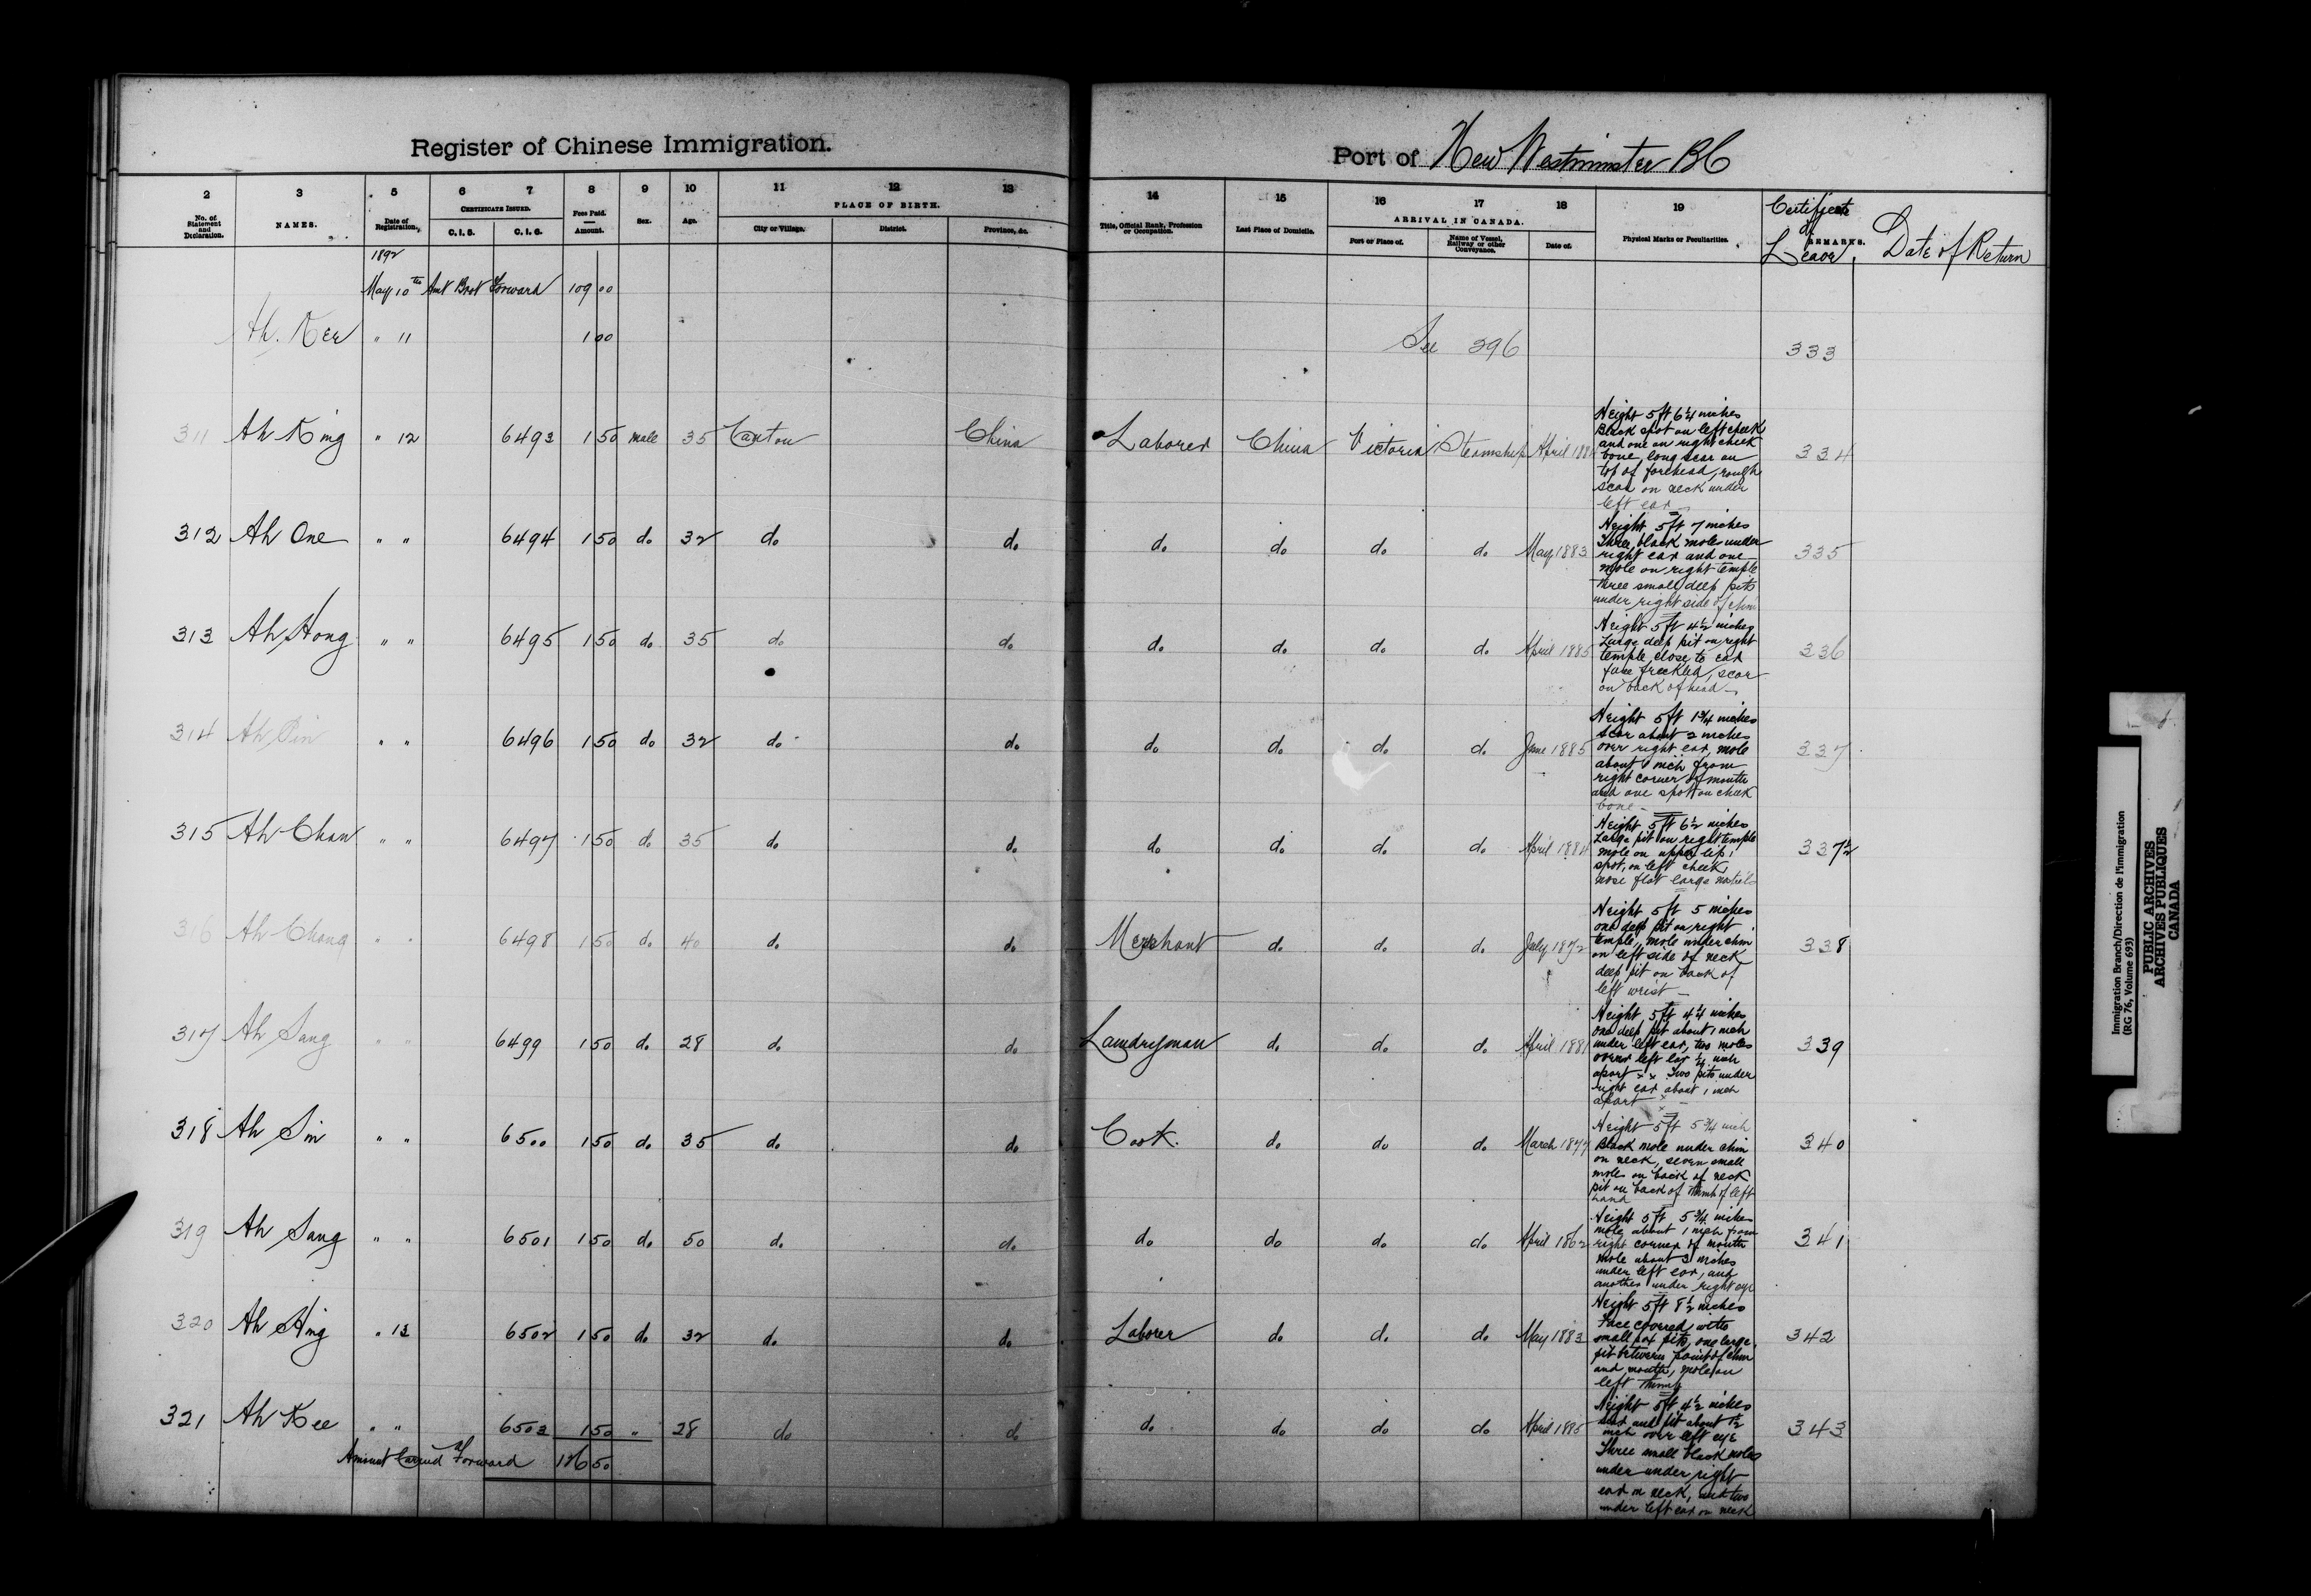 Register of Chinese Immigration.
Port of New Westminster BC
2 3 5 6 7 8 9 10 11 12 13 14 15 16 17 18 19
No. of Statement and Declaration. NAMES. Date of Registration. CERTIFICATE ISSUED. C. I. 5. C. I. 6. Fees Paid. Amount. Sex. Age. PLACE OF BIRTH. City or Village. District. Province, &c. Title, Official Rank, Profession or Occupation. Last Place of Domicile. ARRIVAL IN CANADA. Port or Place of. Name of Vessel, Railway or other Conveyance. Date of. Physical Marks or Peculiarities. REMARKS. Certificate of Leave. Date of Return
1892
May 10th Amt Brot Forward 109 00
Ah. Kee " 11 1 00 See 396 333
311 Ah King " 12 6493 1 50 male 35 Canton China Laborer China Victoria Steamship April 188
Height 5 ft 6 1/4 inches
Black spot on left cheek
and one on right cheek
bone, long scar on
top of forehead, rough
scar on neck under
left ear
334
312 Ah One " " 6494 1 50 do 32 do do do do do do May 1883
Height 5 ft 7 inches
Three black moles under
right ear and one
mole on right temple
three small deep pits
under right side of chin
335
313 Ah Hong " " 6495 1 50 do 35 do do do do do do April 1885
Height 5 ft 4 1/2 inches
Large deep pit on right
temple close to ear
face freckled, scar
on back of head
336
314 Ah " " 6496 1 50 do 32 do do do do do do June 1885
Height 5 ft 1 3/4 inches
scar about 2 inches
over right ear, mole
about 1 inch from
right corner of mouth
and one spot on cheek
bone
337
315 Ah Chan " " 6497 1 50 do 35 do do do do do do April 1884
Height 5 ft 6 1/2 inches
Large pit on right temple
mole on upper lip,
spot on left cheek,
nose flat large nostrils
337 1/2
316 Ah Chong " " 6498 1 50 do 40 do do Merchant do do do July 1872
Height 5 ft 5 inches
one deep pit on right
temple, mole under chin
on left side of neck
deep pit on back of
left wrist
338
317 Ah Sang " " 6499 1 50 do 28 do do Laundryman do do do April 1881
Height 5 ft 4 1/4 inches
one deep pit about 1 inch
under left ear, two moles
over left ear 1/4 inch
apart x x Two pits under
right ear about 1 inch
apart
339
318 Ah Sin " " 6500 1 50 do 35 do do Cook. do do do March 1877
Height 5 ft 5 3/4 inch
Black mole under chin
on neck, seven small
moles on back of neck
pit on back of thumb of left
hand
340
319 Ah Sang " " 6501 1 50 do 50 do do do do do do April 1862
Height 5 ft 5 3/4 inches
mole about 1 inch from
right corner of mouth
mole about 3 inches
under left ear, and
another under right eye
341
320 Ah Hing " 13 6502 1 50 do 32 do do Laborer do do do May 1883
Height 5 ft 8 1/2 inches
Face covered with
small pox pits, one large
pit between point of chin
and mouth, mole on
left thumb
342
321 Ah Kee " " 6503 1 50 " 28 do do do do do do April 1885
Height 5 ft 4 1/2 inches
scar and pit about 1/2
inch over left eye
Three small black moles
under under right
ear on neck, and two
under left ear on neck
343
Amount Carried Forward 126 50
Immigration Branch/Direction de l'immigration
(RG 76, Volume 693)
PUBLIC ARCHIVES
ARCHIVES PUBLIQUES
CANADA